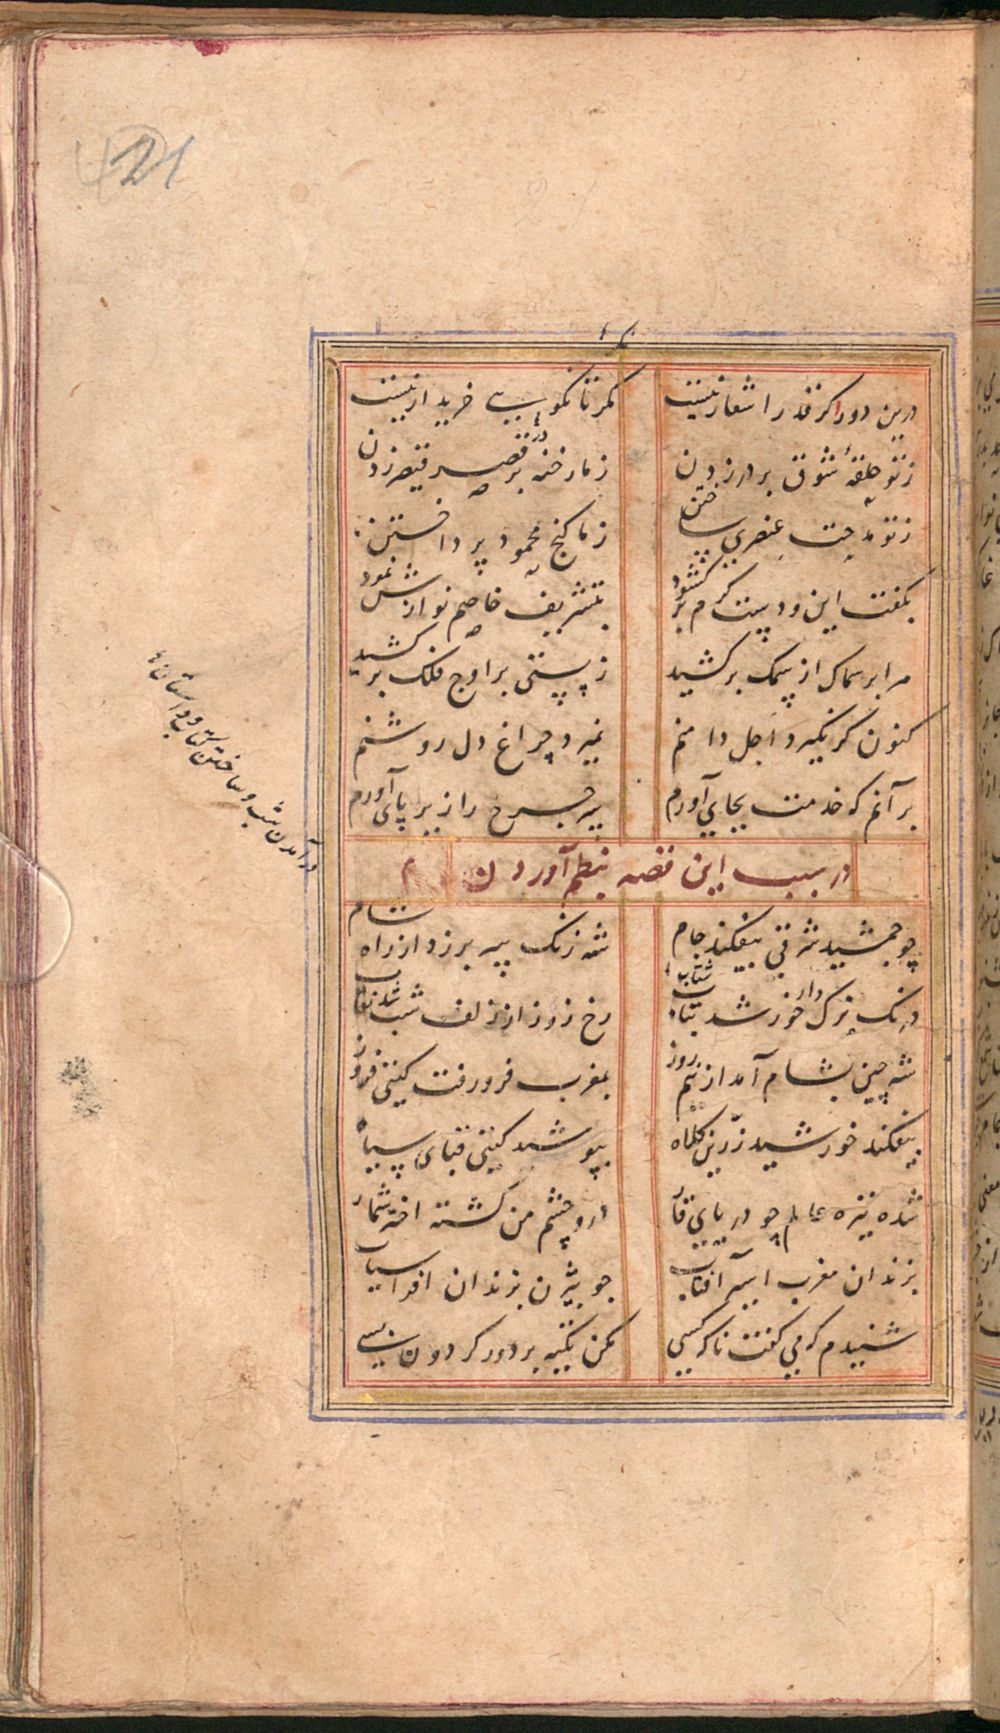 21
درین دور اگر قدر اشعار نیست
مگر تا نگویی خریدار نیست
ز تو حلقهٔ شوق بر در زدن
ز ما رخنه در قصر قیصر زدن
ز تو مدحت عنصری ساختن
ز ما گنج محمود پرداختن
بگفت این و دست کرم برگشود
بتشریف خاصم نوازش نمود
مرا بر سماک از سمک برکشید
ز پستی بر اوج فلک برکشید
کنون گر نگیرد اجل دامنم
نمیرد چراغ دل روشنم
برآنم که خدمت بجای آورم
سر چرخ را زیر پای آورم
در سبب این قصه بنظم آوردن
چو جمشید شرقی بیفکند جام
شه زنک سر برزد از راه شام
درنک ترک خورشید شتاب
رخ روز از زلف شب شد نقاب
شه چین بشام آمد از نیم روز
بمغرب فرو رفت گیتی فروز
بیفکند خورشید زرین کلاه
بپوشید گیتی قبای سیاه
شده تیره عالم چو دریای قار
درو چشم من گشته اختر شمار
بزندان مغرب اسیر آفتاب
چو بیژن بزندان افراسیاب
شنیدم که می گفت ناگه کسی
مکن تکیه بر دور گردون بسی
در آمدن شب و ساختن کتاب و داستان